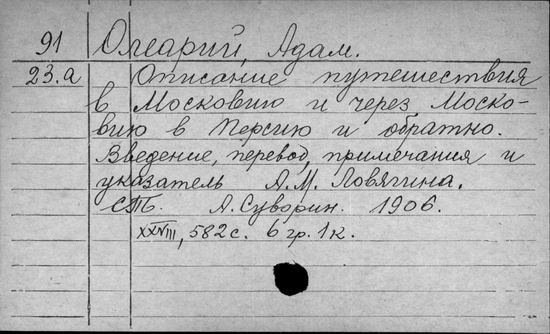 91 Олеарий, Адам.
23.а Описание путешествия
в Московию и через Моско-
вию в Персию и обратно.
Введение, перевод, примечания и
указатель А.М. Ловягина.
СПб. А.Суворин. 1906.
XXVIII, 582 с. 6 гр. 1 к.